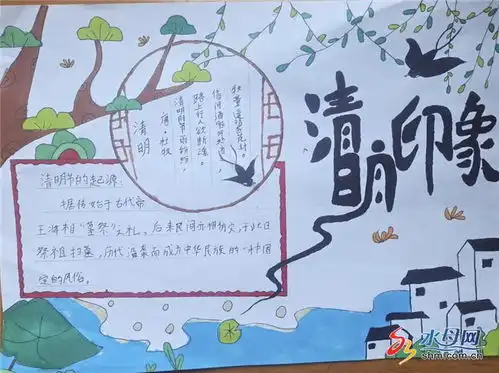 清明印象
清明
唐·杜牧
清明时节雨纷纷，
路上行人欲断魂。
借问酒家何处有，
牧童遥指杏花村。
清明节的起源：
据传始于古代帝
王将相“墓祭”之礼，后来民间亦相仿效，于此日
祭祖扫墓，历代沿袭而成为中华民族的一种固
定的风俗。
水母网
shm.com.cn